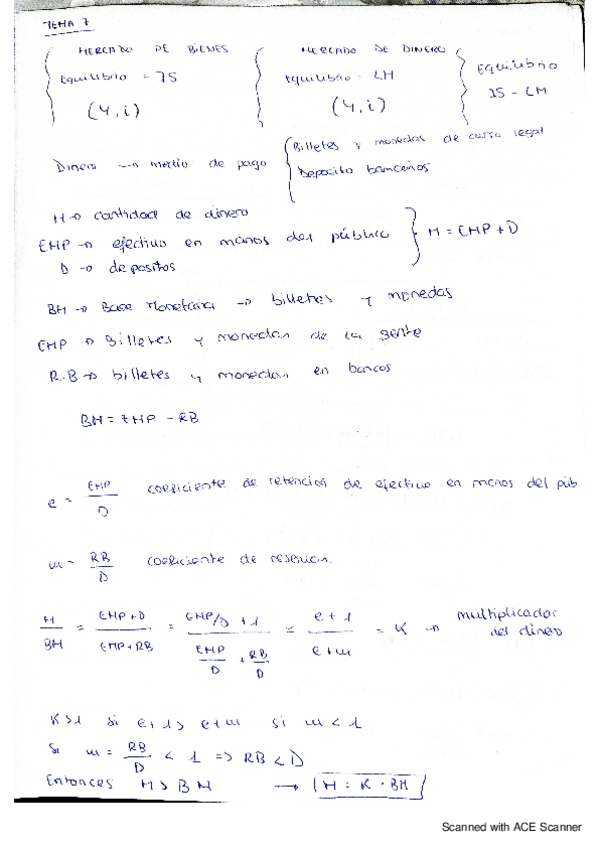 TEMA 7
MERCADO DE BIENES
Equilibrio = IS
(Y, i)
MERCADO DE DINERO
Equilibrio = LM
(Y, i)
Equilibrio
IS - LM
Dinero → medio de pago { Billetes y monedas de curso legal
Deposito bancarios
M → cantidad de dinero
EMP → efectivo en manos del público } M = EMP + D
D → depositos
BM → Base Monetaria → billetes y monedas
EMP → Billetes y monedas de la gente
R.B → billetes y monedas en bancos
BM = EMP - RB
e = EMP / D coeficiente de retencion de efectivo en manos del púb
w = RB / D coeficiente de reservas.
M / BM = EMP + D / EMP + RB = EMP/D + 1 / EMP/D + RB/D = e + 1 / e + w = K → multiplicador del dinero
K > 1 si e + 1 > e + w si w < 1
Si w = RB / D < 1 => RB < D
Entonces M > BM → M = K · BM
Scanned with ACE Scanner